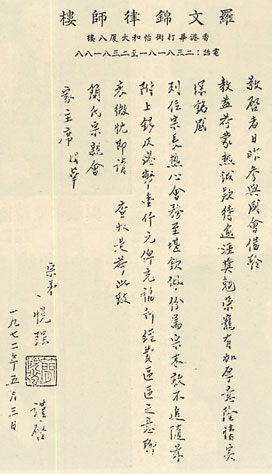 羅文錦律師樓
香港畢打街怡和大廈八樓
電話：二三八一八一至二三八一八八
敬啓者日昨參與盛會借聆
教益荷蒙熱誠款待逾涯獎勉榮寵有加厚意隆情實
深銘感
列位宗長熱心會務至堪欽佩份屬宗末敢不追隨茲
附上銀毫港幣壹仟元俾充 經費區區之意聊
表微忱即請 查收是荷此致
簡氏宗親會
家主席
宗弟
悅強 謹啓
一九七二年五月三日